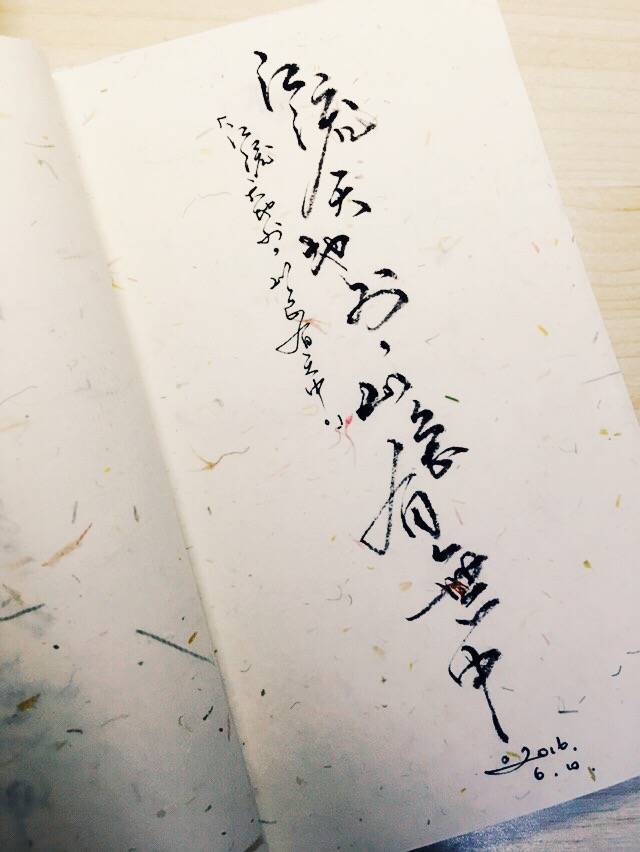 江流天地外，山色有無中
「江流天地外，山色有无中。」
2016.
6.10